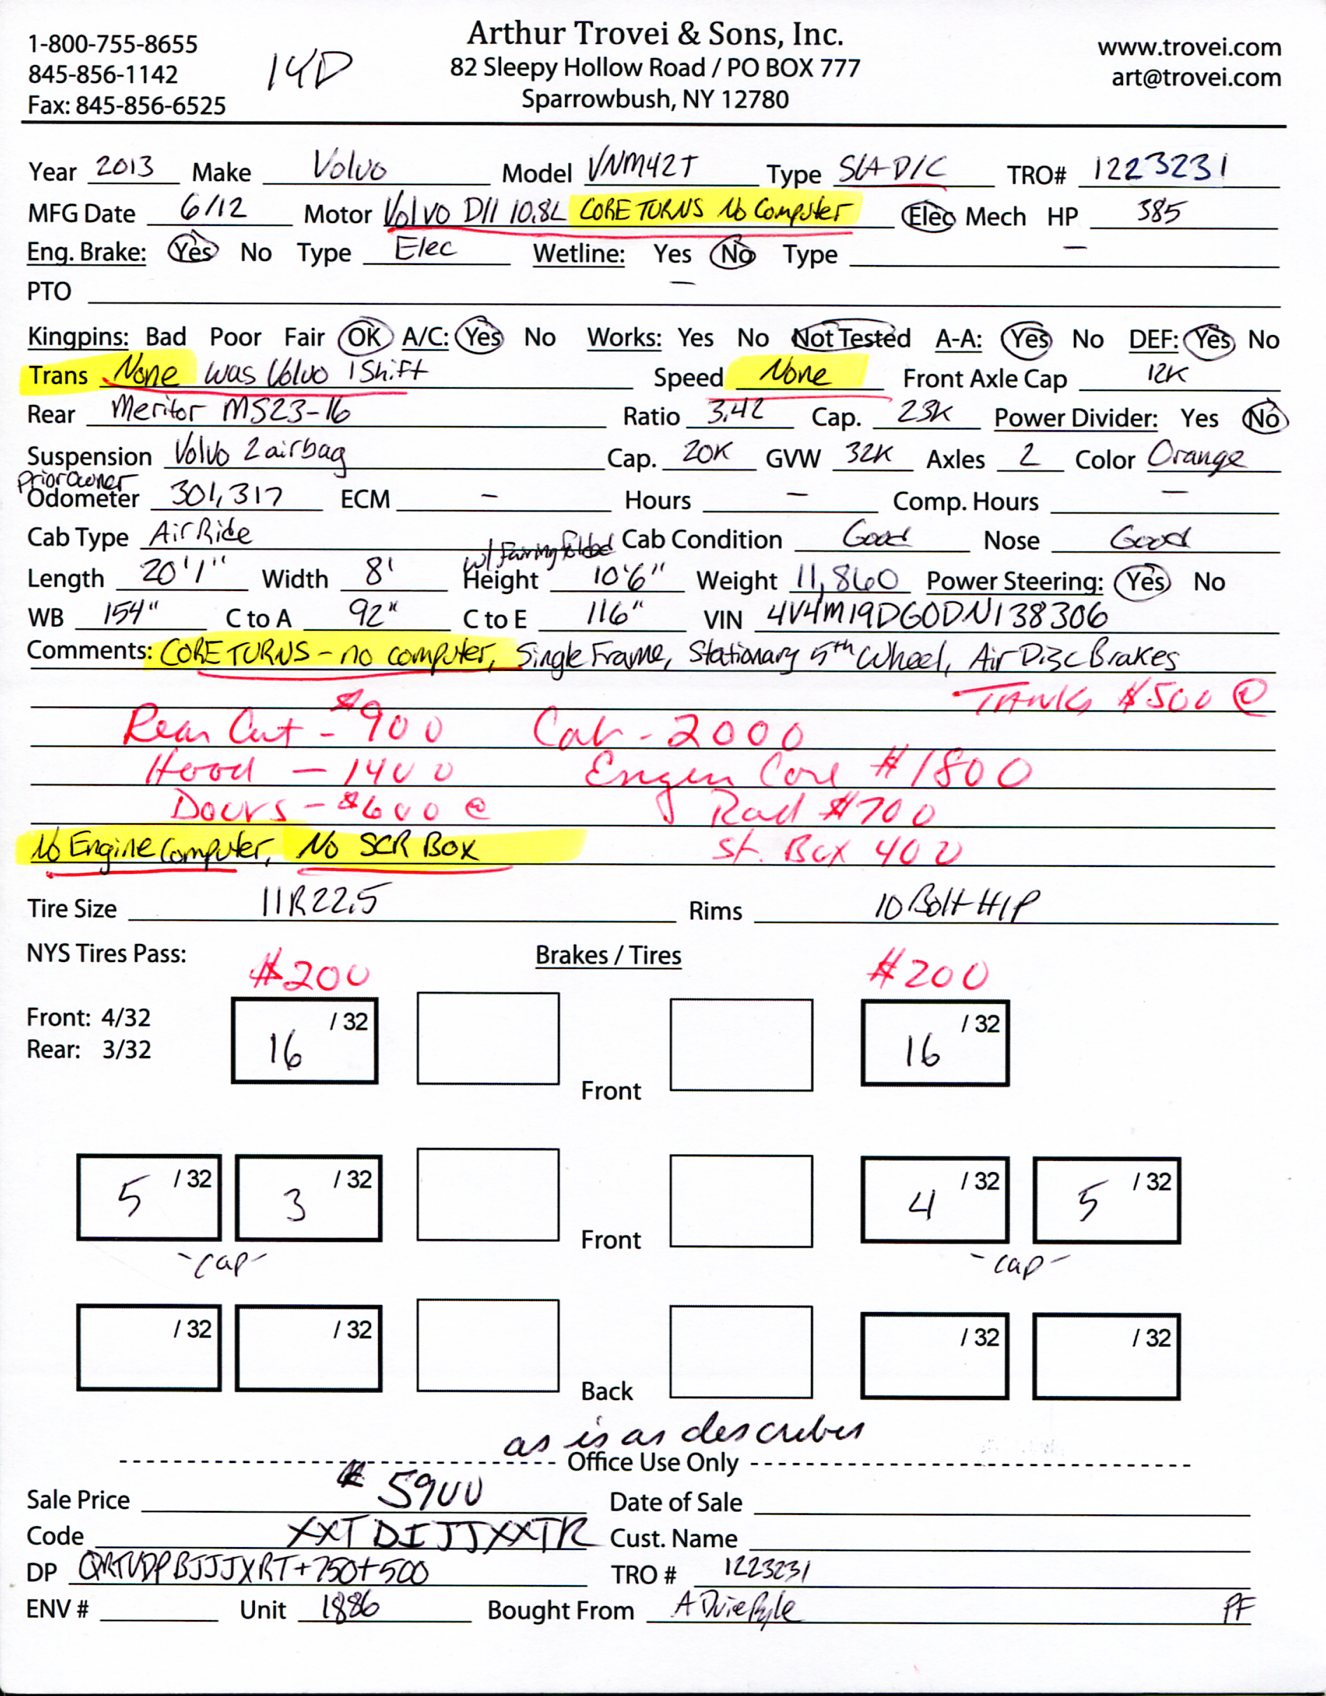 1-800-755-8655
845-856-1142
Fax: 845-856-6525
14D
Arthur Trovei & Sons, Inc.
82 Sleepy Hollow Road / PO BOX 777
Sparrowbush, NY 12780
www.trovei.com
art@trovei.com
Year 2013 Make Volvo Model VNM42T Type S/A D/C TRO# 1223231
MFG Date 6/12 Motor Volvo D11 10.8L CORE TURNS No Computer Elec Mech HP 385
Eng. Brake: Yes No Type Elec Wetline: Yes No Type —
PTO —
Kingpins: Bad Poor Fair OK A/C: Yes No Works: Yes No Not Tested A-A: Yes No DEF: Yes No
Trans None was Volvo IShift Speed None Front Axle Cap 12K
Rear Meritor MS23-16 Ratio 3.42 Cap. 23K Power Divider: Yes No
Suspension Volvo 2 airbag Cap. 20K GVW 32K Axles 2 Color Orange
Prior Owner
Odometer 301,317 ECM — Hours — Comp. Hours —
Cab Type Air Ride Cab Condition Good Nose Good
w/ Fairing folded
Length 20'1" Width 8' Height 10'6" Weight 11,860 Power Steering: Yes No
WB 154" C to A 92" C to E 116" VIN 4V4M19DG0DN138306
Comments: CORE TURNS - no computer, Single Frame, Stationary 5th Wheel, Air Disc Brakes
TANKS $500 @
Rear Cut - $900 Cab - 2000
Hood - 1400 Engin Core #1800
Doors - $600 @ Rad $700
No Engine Computer, No SCR Box St. Box 400
Tire Size 11R22.5 Rims 10 Bolt H/P
NYS Tires Pass: Brakes / Tires
$200 $200
Front: 4/32
Rear: 3/32
16 / 32 16 / 32
Front
5 / 32 3 / 32 4 / 32 5 / 32
Front
-cap- -cap-
/ 32 / 32 / 32 / 32
Back
as is as describes
Office Use Only
Sale Price $5900 Date of Sale
Code XXTDIJJXXTR Cust. Name
DP QRTVDPBJJJXRT+750+500 TRO # 1223231
ENV # Unit 1886 Bought From A Duie Pyle PF